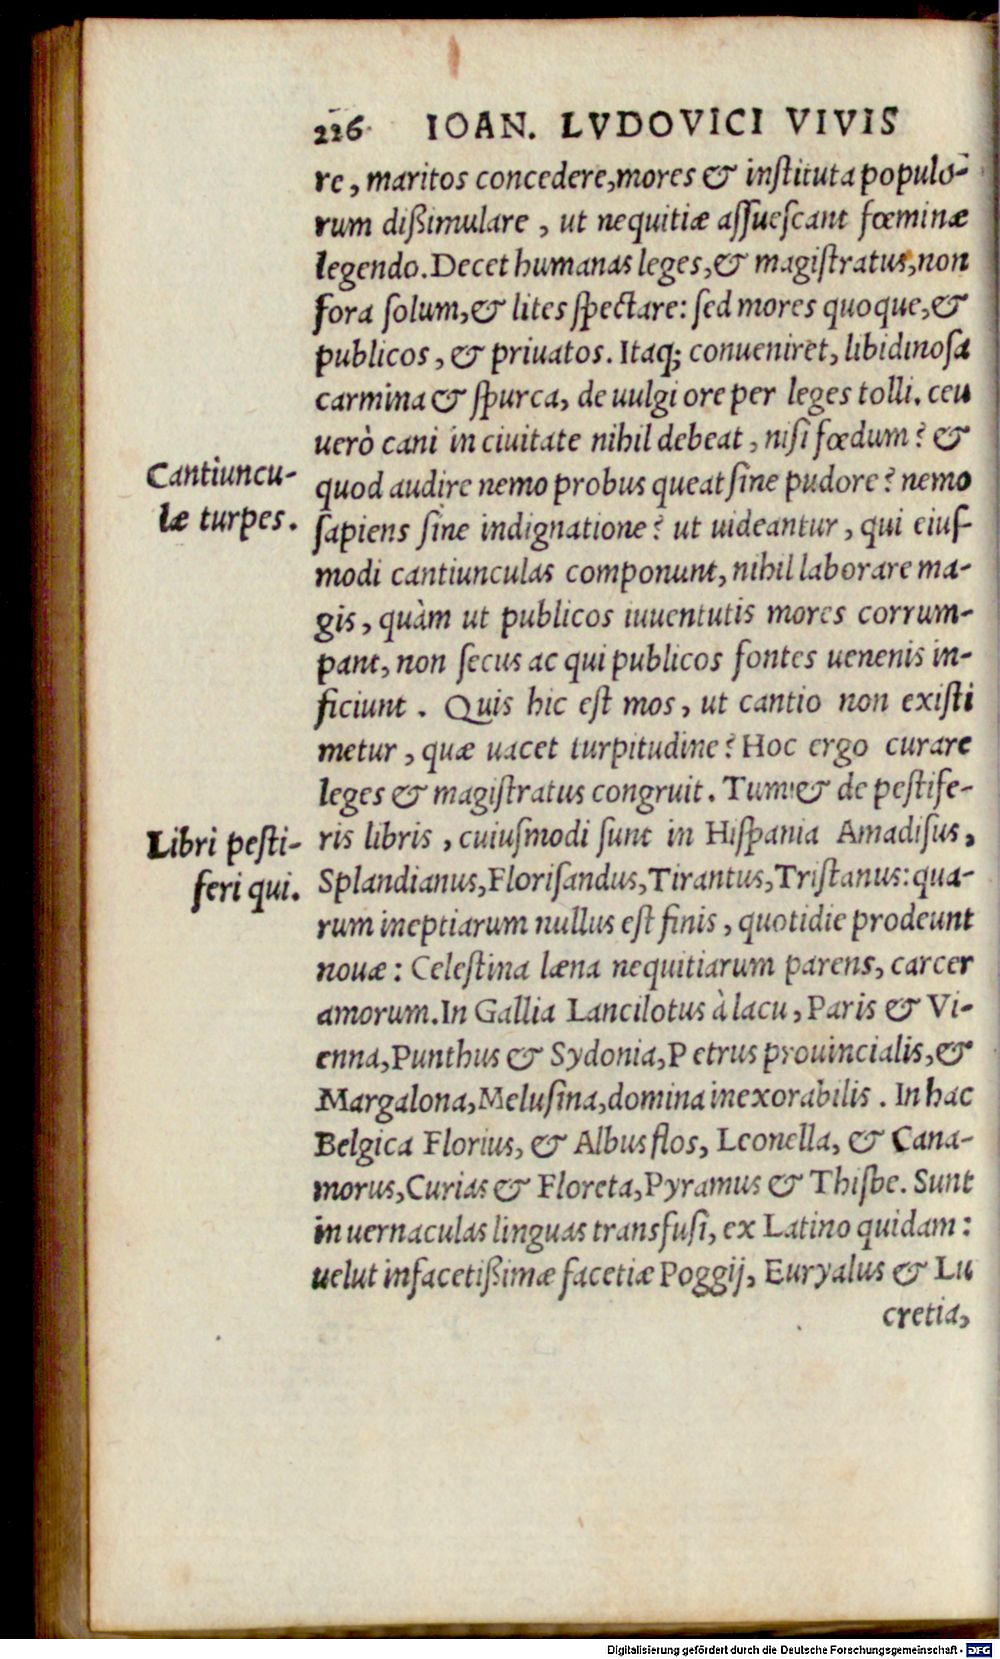 226 IOAN. LVDOVICI VIVIS
re, maritos concedere, mores & instituta populo-
rum dißimulare, ut nequitiæ aſſueſcant fœminæ
legendo. Decet humanas leges, & magiſtratus, non
fora ſolum, & lites ſpectare: ſed mores quoque, &
publicos, & priuatos. Itaq; conueniret, libidinoſa
carmina & ſpurca, de uulgi ore per leges tolli. ceu
uerò cani in ciuitate nihil debeat, niſi fœdum? &
Cantiuncu-
læ turpes.
quod audire nemo probus queat ſine pudore? nemo
ſapiens ſine indignatione? ut uideantur, qui eiuſ-
modi cantiunculas componunt, nihil laborare ma-
gis, quàm ut publicos iuuentutis mores corrum-
pant, non ſecus ac qui publicos fontes uenenis in-
ficiunt. Quis hic eſt mos, ut cantio non exiſti
metur, quæ uacet turpitudine? Hoc ergo curare
leges & magiſtratus congruit. Tum & de peſtife-
Libri peſti-
feri qui.
ris libris, cuiuſmodi ſunt in Hiſpania Amadiſus,
Splandianus, Floriſandus, Tirantus, Triſtanus: qua-
rum ineptiarum nullus eſt finis, quotidie prodeunt
nouæ: Celeſtina læna nequitiarum parens, carcer
amorum. In Gallia Lancilotus à lacu, Paris & Vi-
enna, Punthus & Sydonia, Petrus prouincialis, &
Margalona, Meluſina, domina inexorabilis. In hac
Belgica Florius, & Albus flos, Leonella, & Cana-
morus, Curias & Floreta, Pyramus & Thiſbe. Sunt
in uernaculas linguas transfuſi, ex Latino quidam:
uelut infacetißimæ facetiæ Poggij, Euryalus & Lu
cretia,
Digitalisierung gefördert durch die Deutsche Forschungsgemeinschaft - DFG